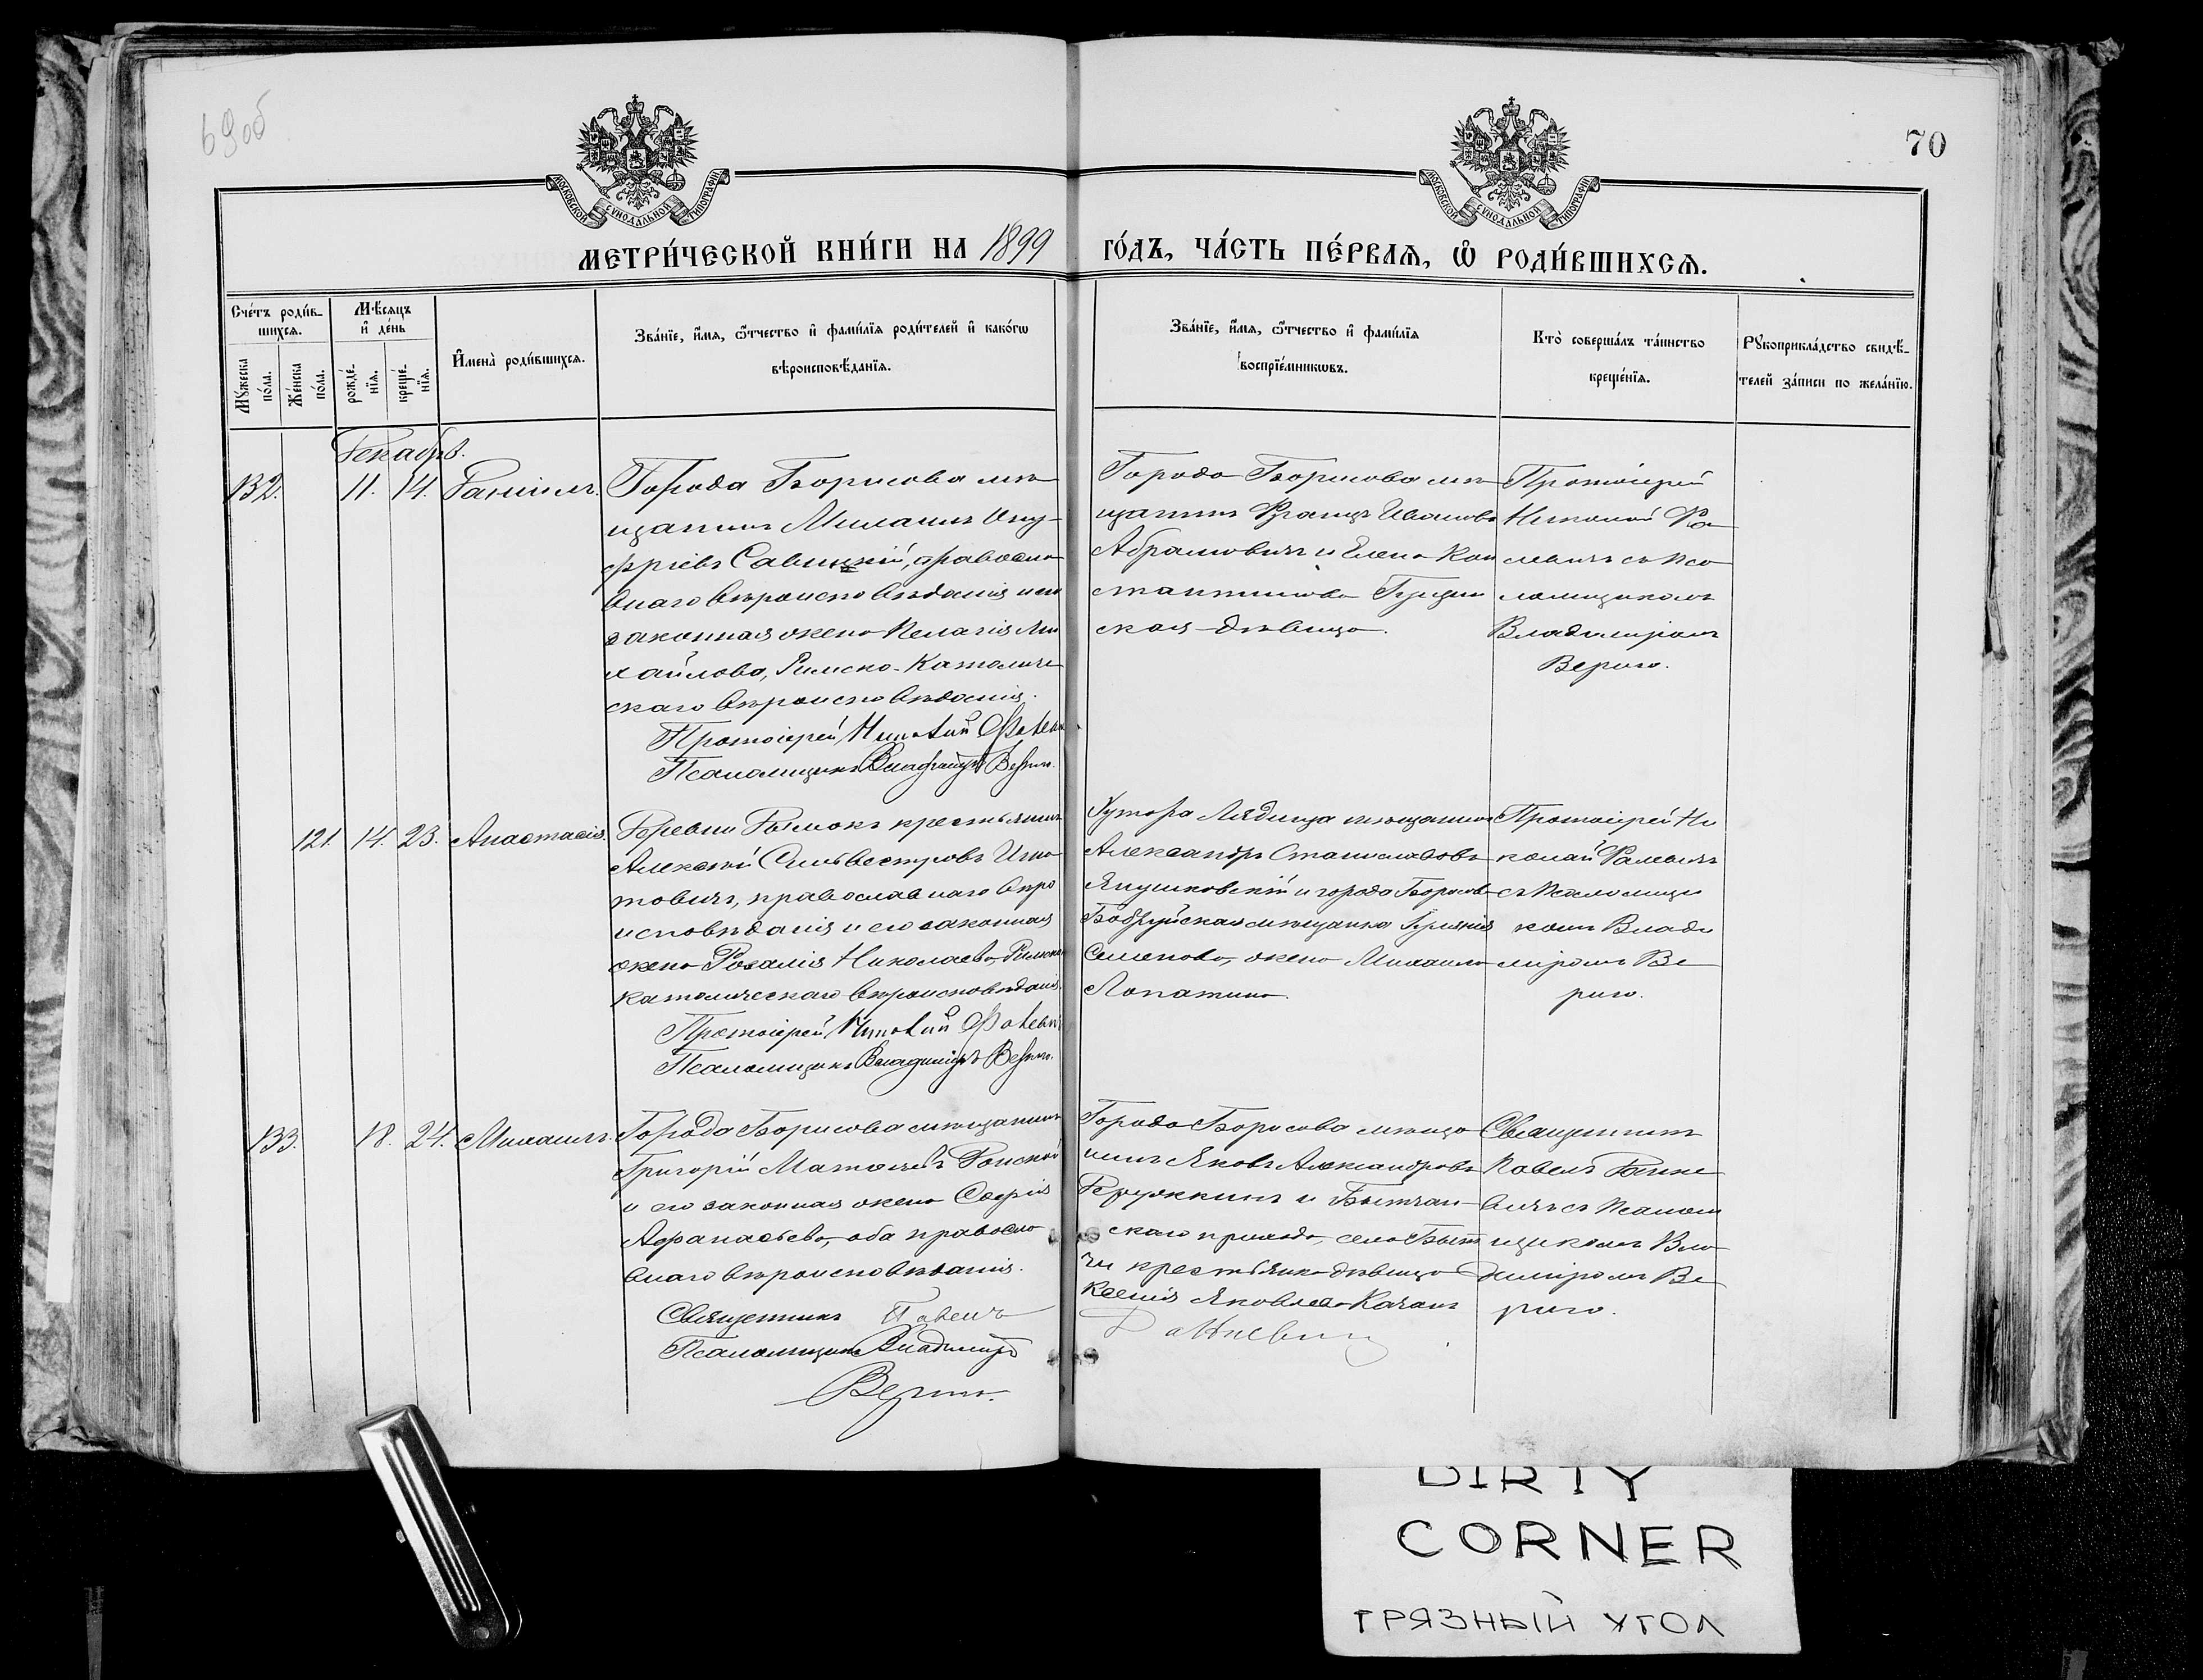 69об
70
МОСКОВСКОЙ СУНОДАЛЬНОЙ ТИПОГРАФІИ
МОСКОВСКОЙ СУНОДАЛЬНОЙ ТИПОГРАФІИ
МЕТРИ́ЧЕСКОЙ КНИ́ГИ НА 1899 ГО́ДЪ, ЧА́СТЬ ПЕ́РВАѦ, Ѡ҆ РОДИ́ВШИХСѦ.
Сче́тъ роди́в-
шихся.
Мꙋ́жеска
по́ла.
Же́нска
по́ла.
Мѣ́сяцъ
и҆ де́нь
рожде́-
нїя.
креще́-
нїя.
И҆мена̀ роди́вшихся.
Зва́нїе, и҆́мя, ѻ҆́тчество и҆ фами́лїя роди́телей и҆ како́гѡ
вѣроисповѣ́данїя.
Зва́нїе, и҆́мя, ѻ҆́тчество и҆ фами́лїя
воспрїе́мникѡвъ.
Кто̀ соверша́лъ та́инство
креще́нїя.
Рꙋкоприкла́дство свидѣ́-
телей за́писи по жела́нїю.
Декабрь.
132. 11. 14. Даніилъ.
Города Борисова мѣ-
щанинъ Михаилъ Ону-
фріевъ Савицкій, православ
наго вѣроисповѣданія и его
законная жена Пелагія Ми
хайлова, Римско-Католиче
скаго вѣроисповѣданія.
Протоіерей Николай
Псаломщикъ Владиміръ Верига.
Города Борисова мѣ-
щанинъ Францъ Ивановъ
Абрамовичъ и Елена Кон
стантинова
ская-дѣвица.
Протоіерей
Николай
левичъ съ Пса
ломщикомъ
Владиміромъ
Верига.
121. 14. 23. Анастасія.
Деревни Дымокъ крестьянинъ
Алексѣй Сильвестровъ Игна
товичъ, православнаго вѣро
исповѣданія и его законная
жена Розалія Николаева, Римско
католическаго вѣроисповѣданія.
Протоіерей Николай
Псаломщикъ Владиміръ Верига.
Хутора Лядища мѣщанинъ
Александръ Станиславовъ
Янушковскій и города Борисова
Бобруйская мѣщанка
Семенова, жена Михаила
Лопатина.
Протоіерей Ни
колай
съ Псаломщи
комъ Влади
міромъ Ве
рига.
133. 18. 24. Михаилъ.
Города Борисова мѣщанинъ
Григорій Матѳеевъ
и его законная жена Софія
Афанасьева, оба православ
наго вѣроисповѣданія.
Священникъ Павелъ
Псаломщикъ Владиміръ
Верига.
Города Борисова мѣща
нинъ Яковъ Александровъ
и Бытчан-
скаго прихода, села Быт
чи крестьянка дѣвица
Ксенія Яковлева Качанъ
Священникъ
Павелъ Дашке
вичъ съ Псалом
щикомъ Вла
диміромъ Ве
рига.
DIRTY
CORNER
ГРЯЗНЫЙ УГОЛ